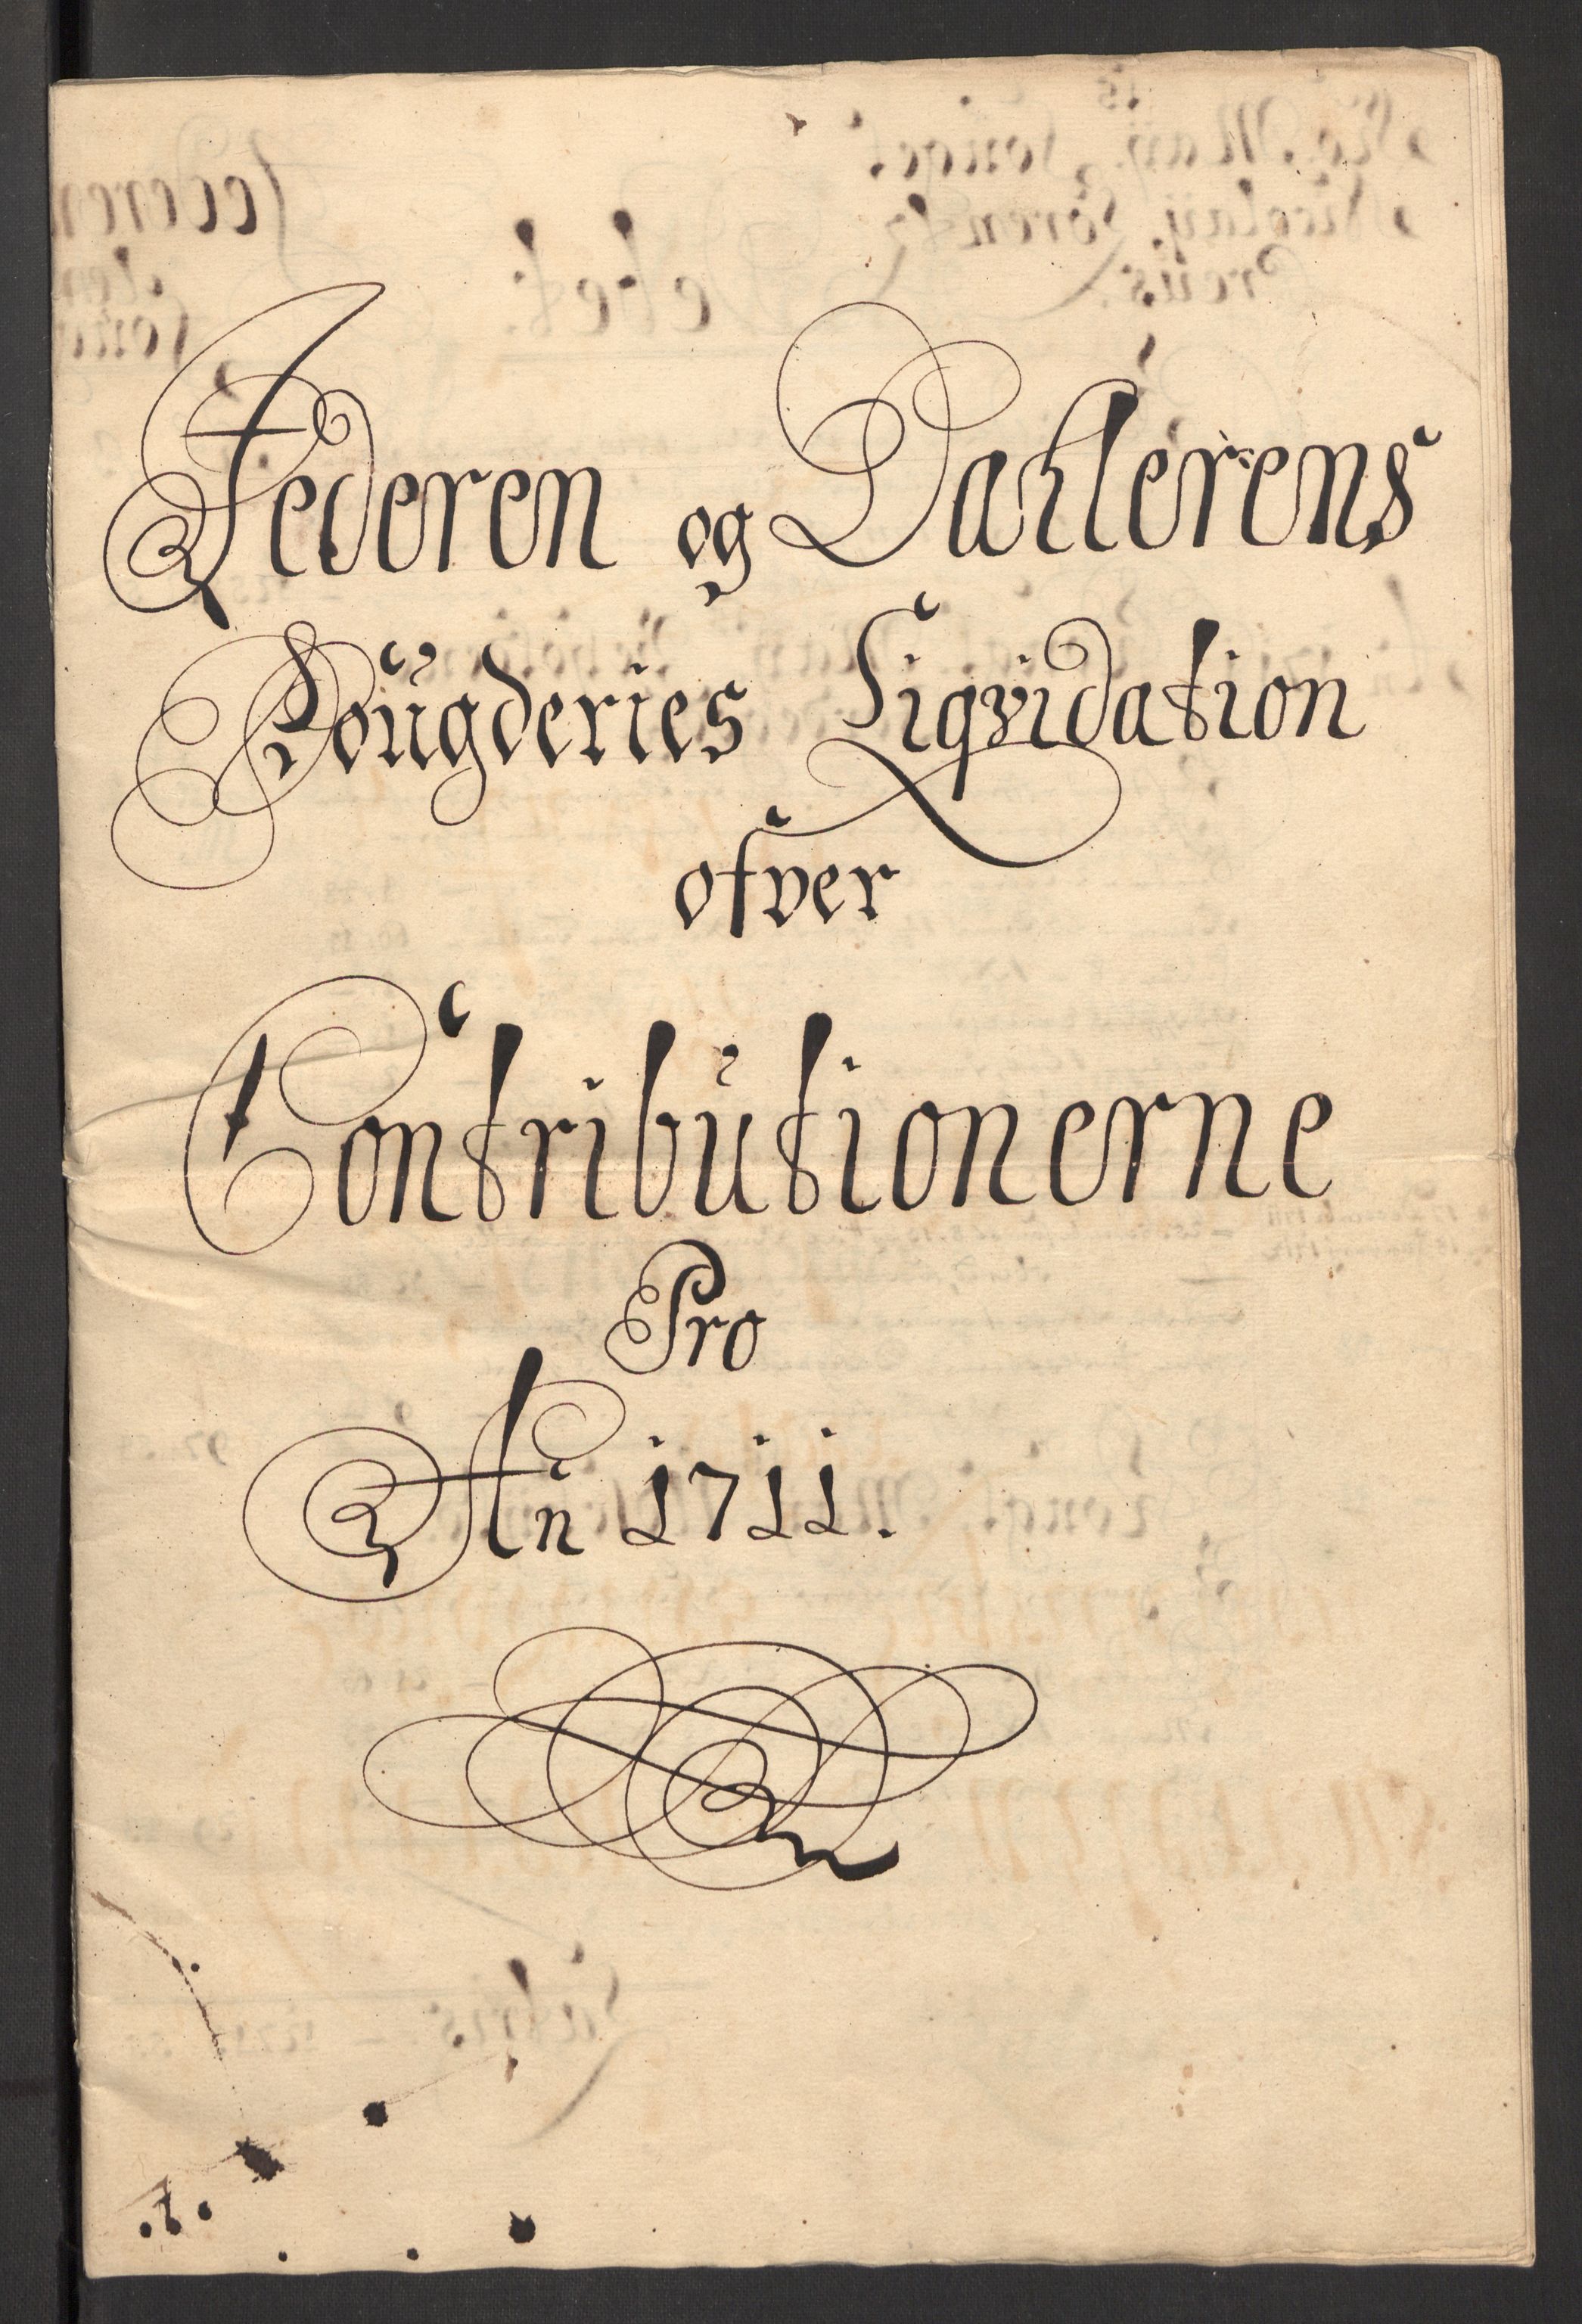 Jederen og Dahlerens
Fougderies Liqvidation
ofver
Contributionerne
Pro
An̄ 1711.